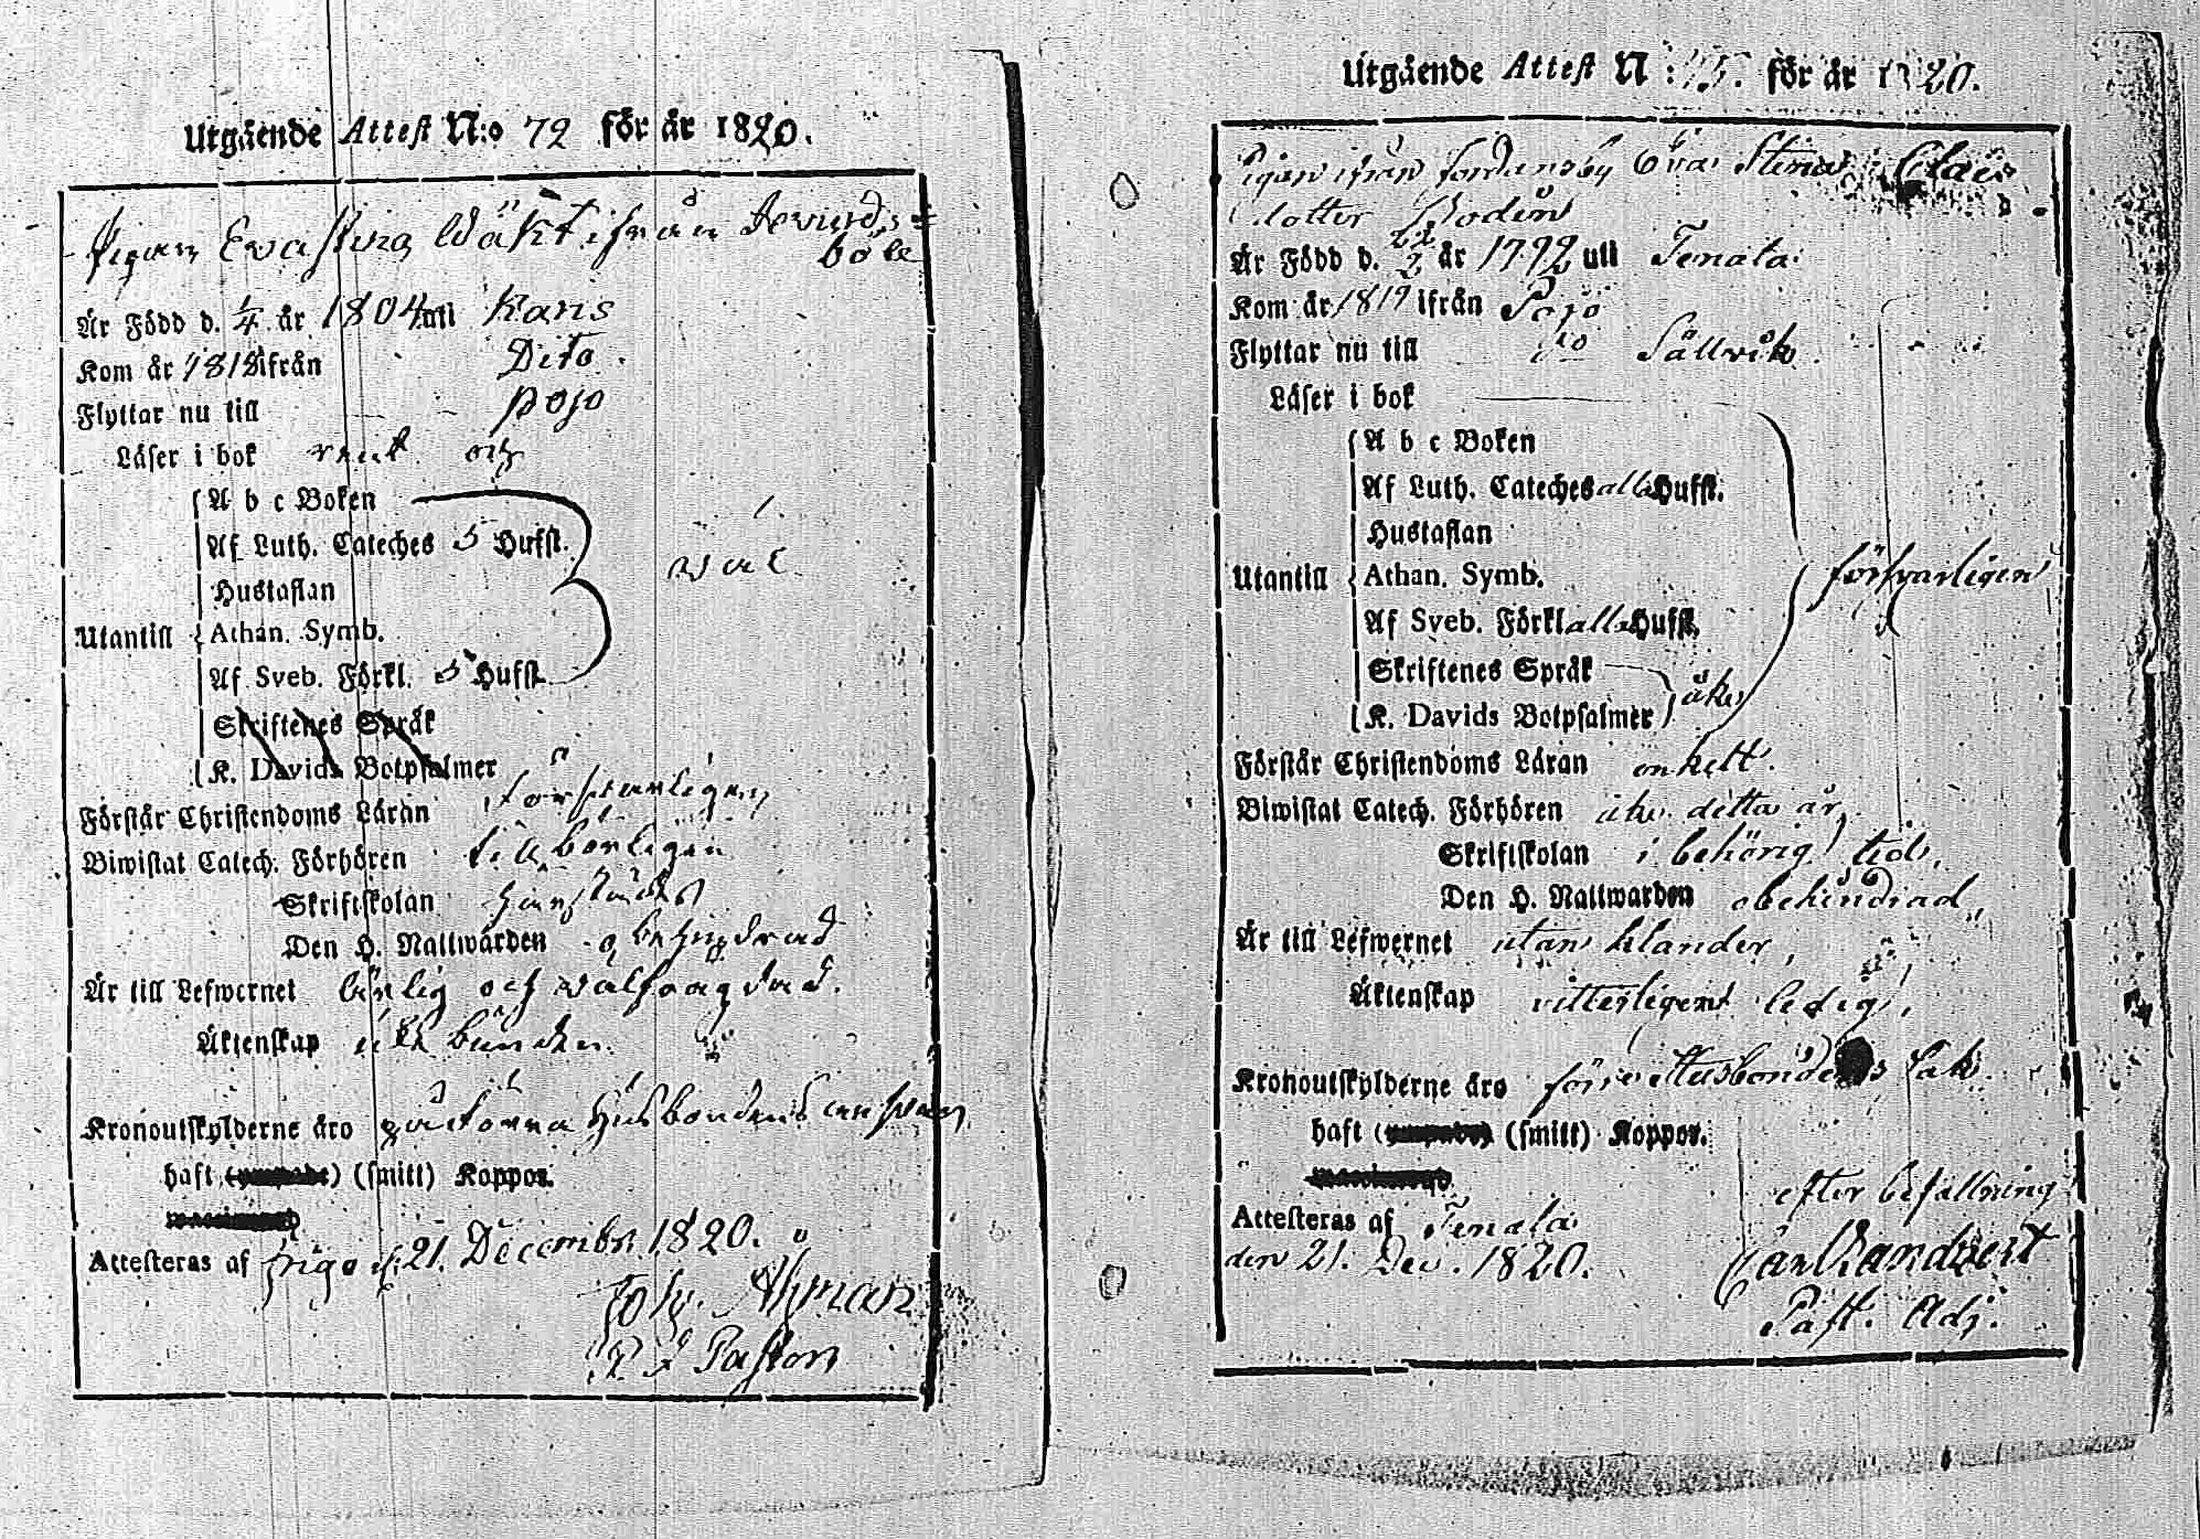 Utgående Attest N:o 72 för år 1820.
Pigan Evastina Wäkt ifrån
böle
Är Född d. 1/4 år 1804 uti Karis
Kom år 1818 ifrån Dito.
Flyttar nu till Pojo
Läser i bok rent och
A b c Boken
Af Luth. Cateches 5 Hufst.
wäl
Hustaflan
Utantill
Athan. Symb.
Af Sveb. Förkl. 5 Hufst.
Skriftenes Språk
K. Davids Botpsalmer
Förstår Christendoms Läran försvarligen
Biwistat Catech. Förhören tillbörligen
Skriftskolan
Den H. Nattwarden obehindrad
Är till Lefwernet ärlig och wälfrägdad.
Äktenskap icke bunden.
Kronoutskylderne äro Husbondens answar
haft (smitt) Koppor.
Attesteras af 21. December 1820.
Joh. Ahman
Pastor
Utgående Attest N: för år 1820.
Pigan ifrån Eva Stina Claës
dotter Bodin
Är Född d. 22/2 år 1792 uti Tenala
Kom år 1819 ifrån Pojo
Flyttar nu till do Sällvik.
Läser i bok
A b c Boken
Af Luth. Cateches alla Hufst.
Hustaflan
Utantill
Athan. Symb.
försvarligen
Af Sveb. Förkl alla Hufst.
Skriftenes Språk
icke
K. Davids Botpsalmer
Förstår Christendoms Läran enkelt.
Biwistat Catech. Förhören icke detta år,
Skriftskolan i behörig tid,
Den H. Nattwarden obehindrad,
Är till Lefwernet utan klander,
Äktenskap vitterligen ledig,
Kronoutskylderne äro förre Husbondens sak.
haft (smitt) Koppor.
efter befallning
Attesteras af Tenala
den 21. Dec. 1820.
Carl
Past. Adj.